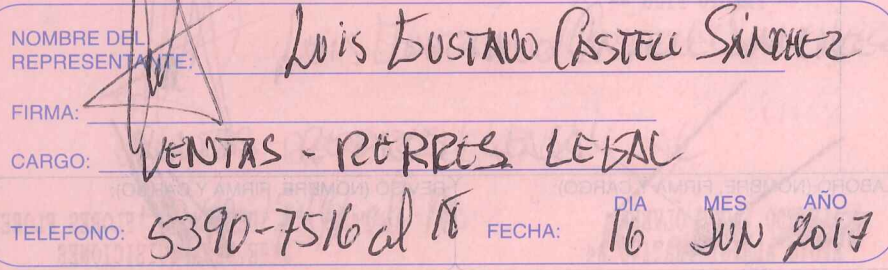 NOMBRE DEL
REPRESENTANTE: Luis Gustavo Castell Sánchez
FIRMA:
CARGO: VENTAS - REPRES. LEGAL
TELEFONO: 5390-7516 al 18 FECHA: DIA 16 MES JUN AÑO 2017